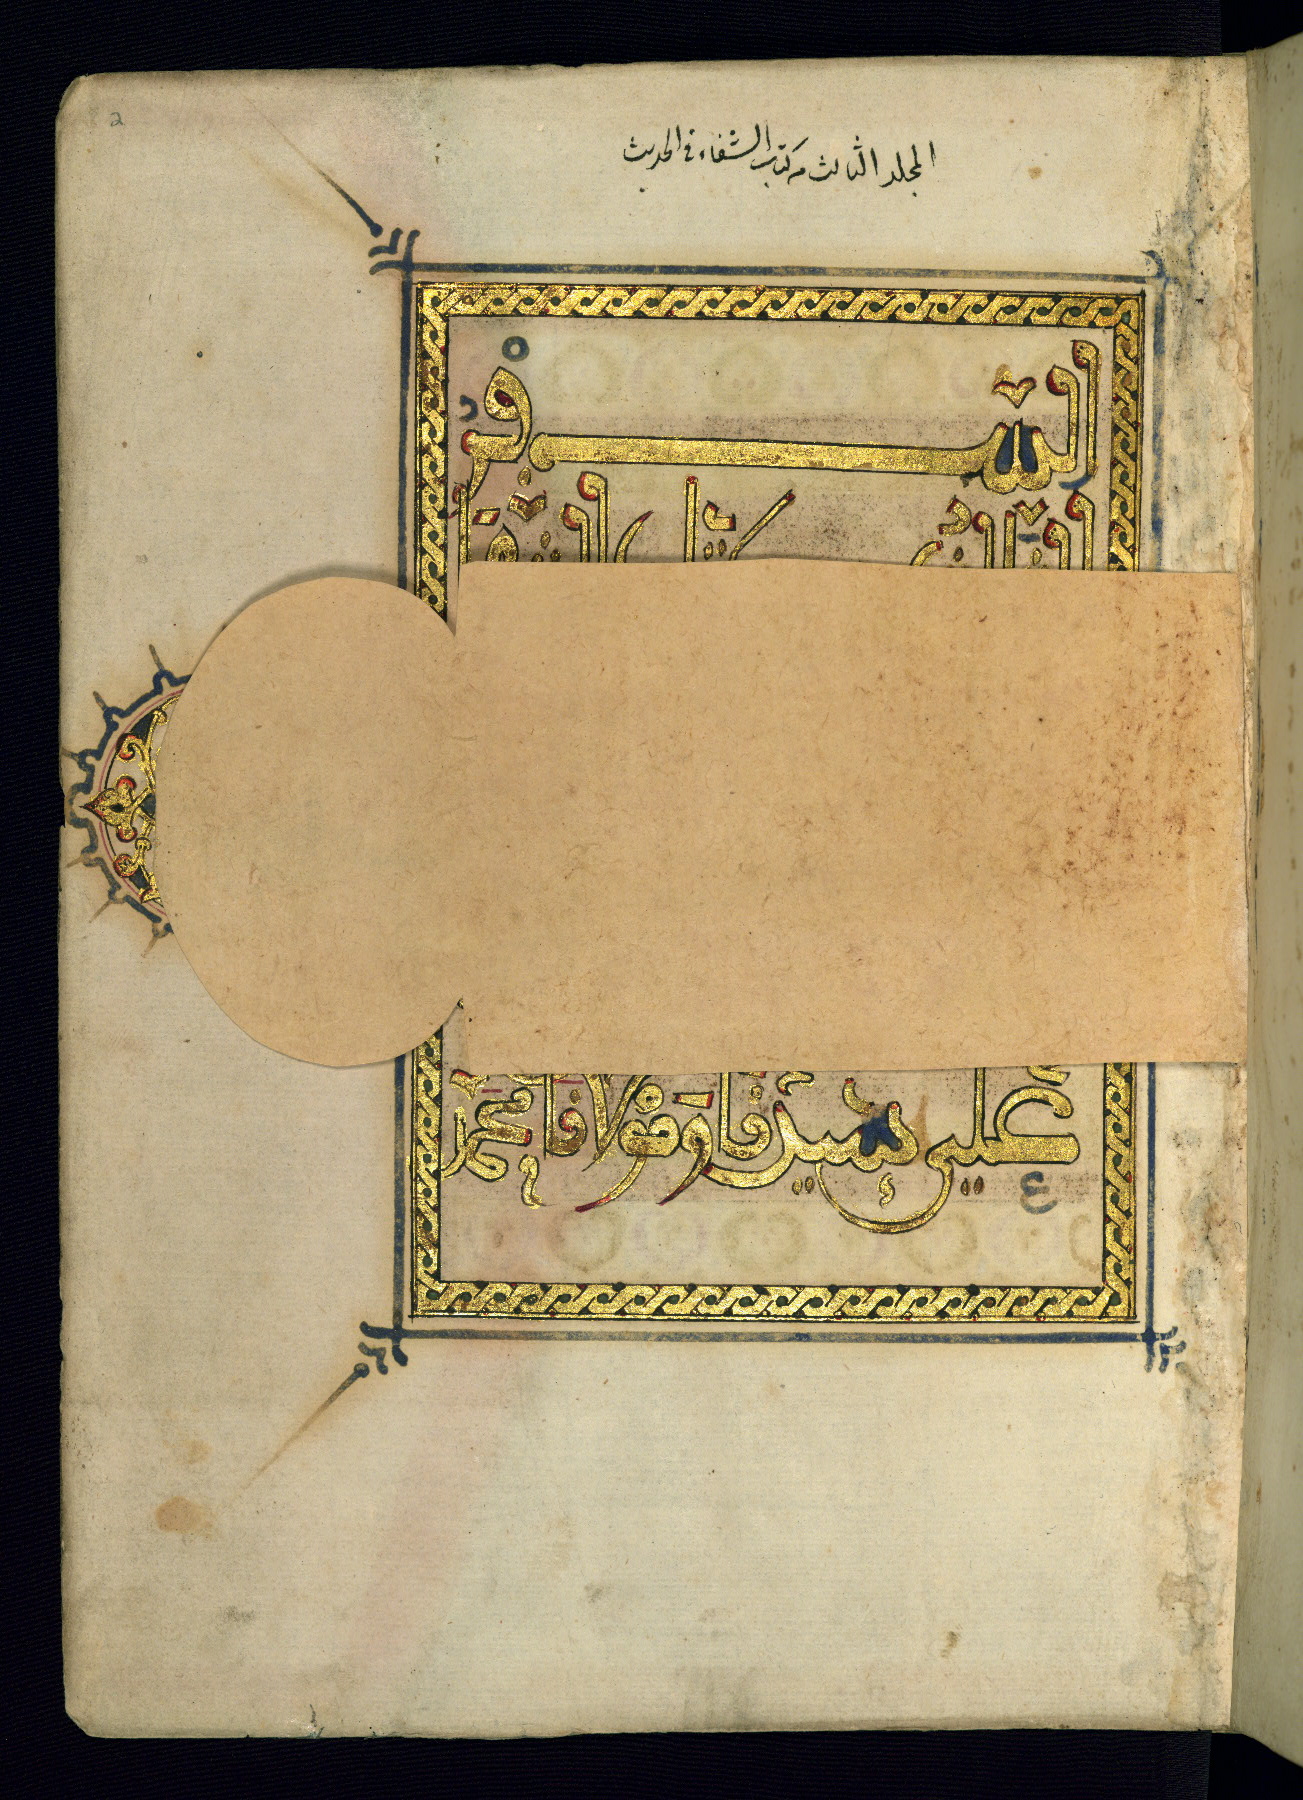 2
المجلد الثالث من كتاب الشفاء فى الحديث
السفر
على سيدنا ومولانا محمد